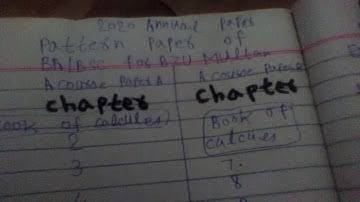 2020 Annual Paper
Pattern Paper of
BA/BSC for BZU Multan
A course Paper A
A course Paper B
chapter
chapter
Book of calcules
Book of
calcules
2
3
7.
8